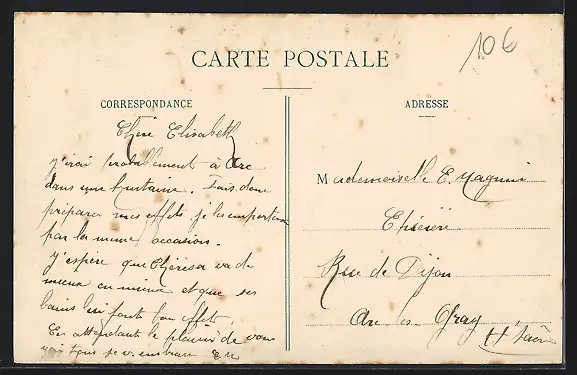 106
CARTE POSTALE
CORRESPONDANCE
ADRESSE
Chère Elisabeth
J'irai probablement à Arc
dans une huitaine. Fais donc
préparer mes effets je les emporterai
par la même occasion.
J'espère que Thérèse va de
mieux en mieux et que ses
bains lui font bon effet.
En attendant le plaisir de vous
voir tous je v. embrasse
Mademoiselle E. Magnini
Epicière
Rue de Dijon
Arc les Gray
Hte Saône